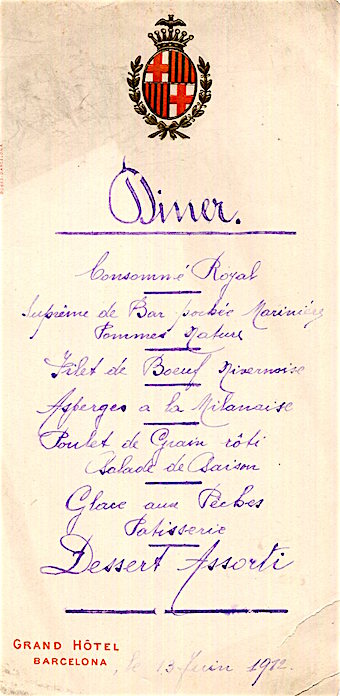 Diner.
Consommé Royal
Suprême de Bar pochée Marinière
Pommes Nature
Filet de Boeuf Nivernoise
Asperges a la Milanaise
Poulet de Grain rôti
Salade de Saison
Glace aux Pêches
Patisserie
Dessert Assorti
GRAND HÔTEL
BARCELONA
le 13 Juin 1912